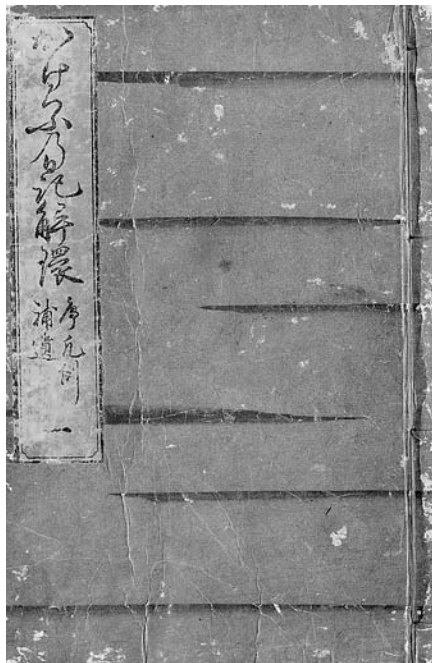 かけろふ乃日記解環
序凡例
補遺
一